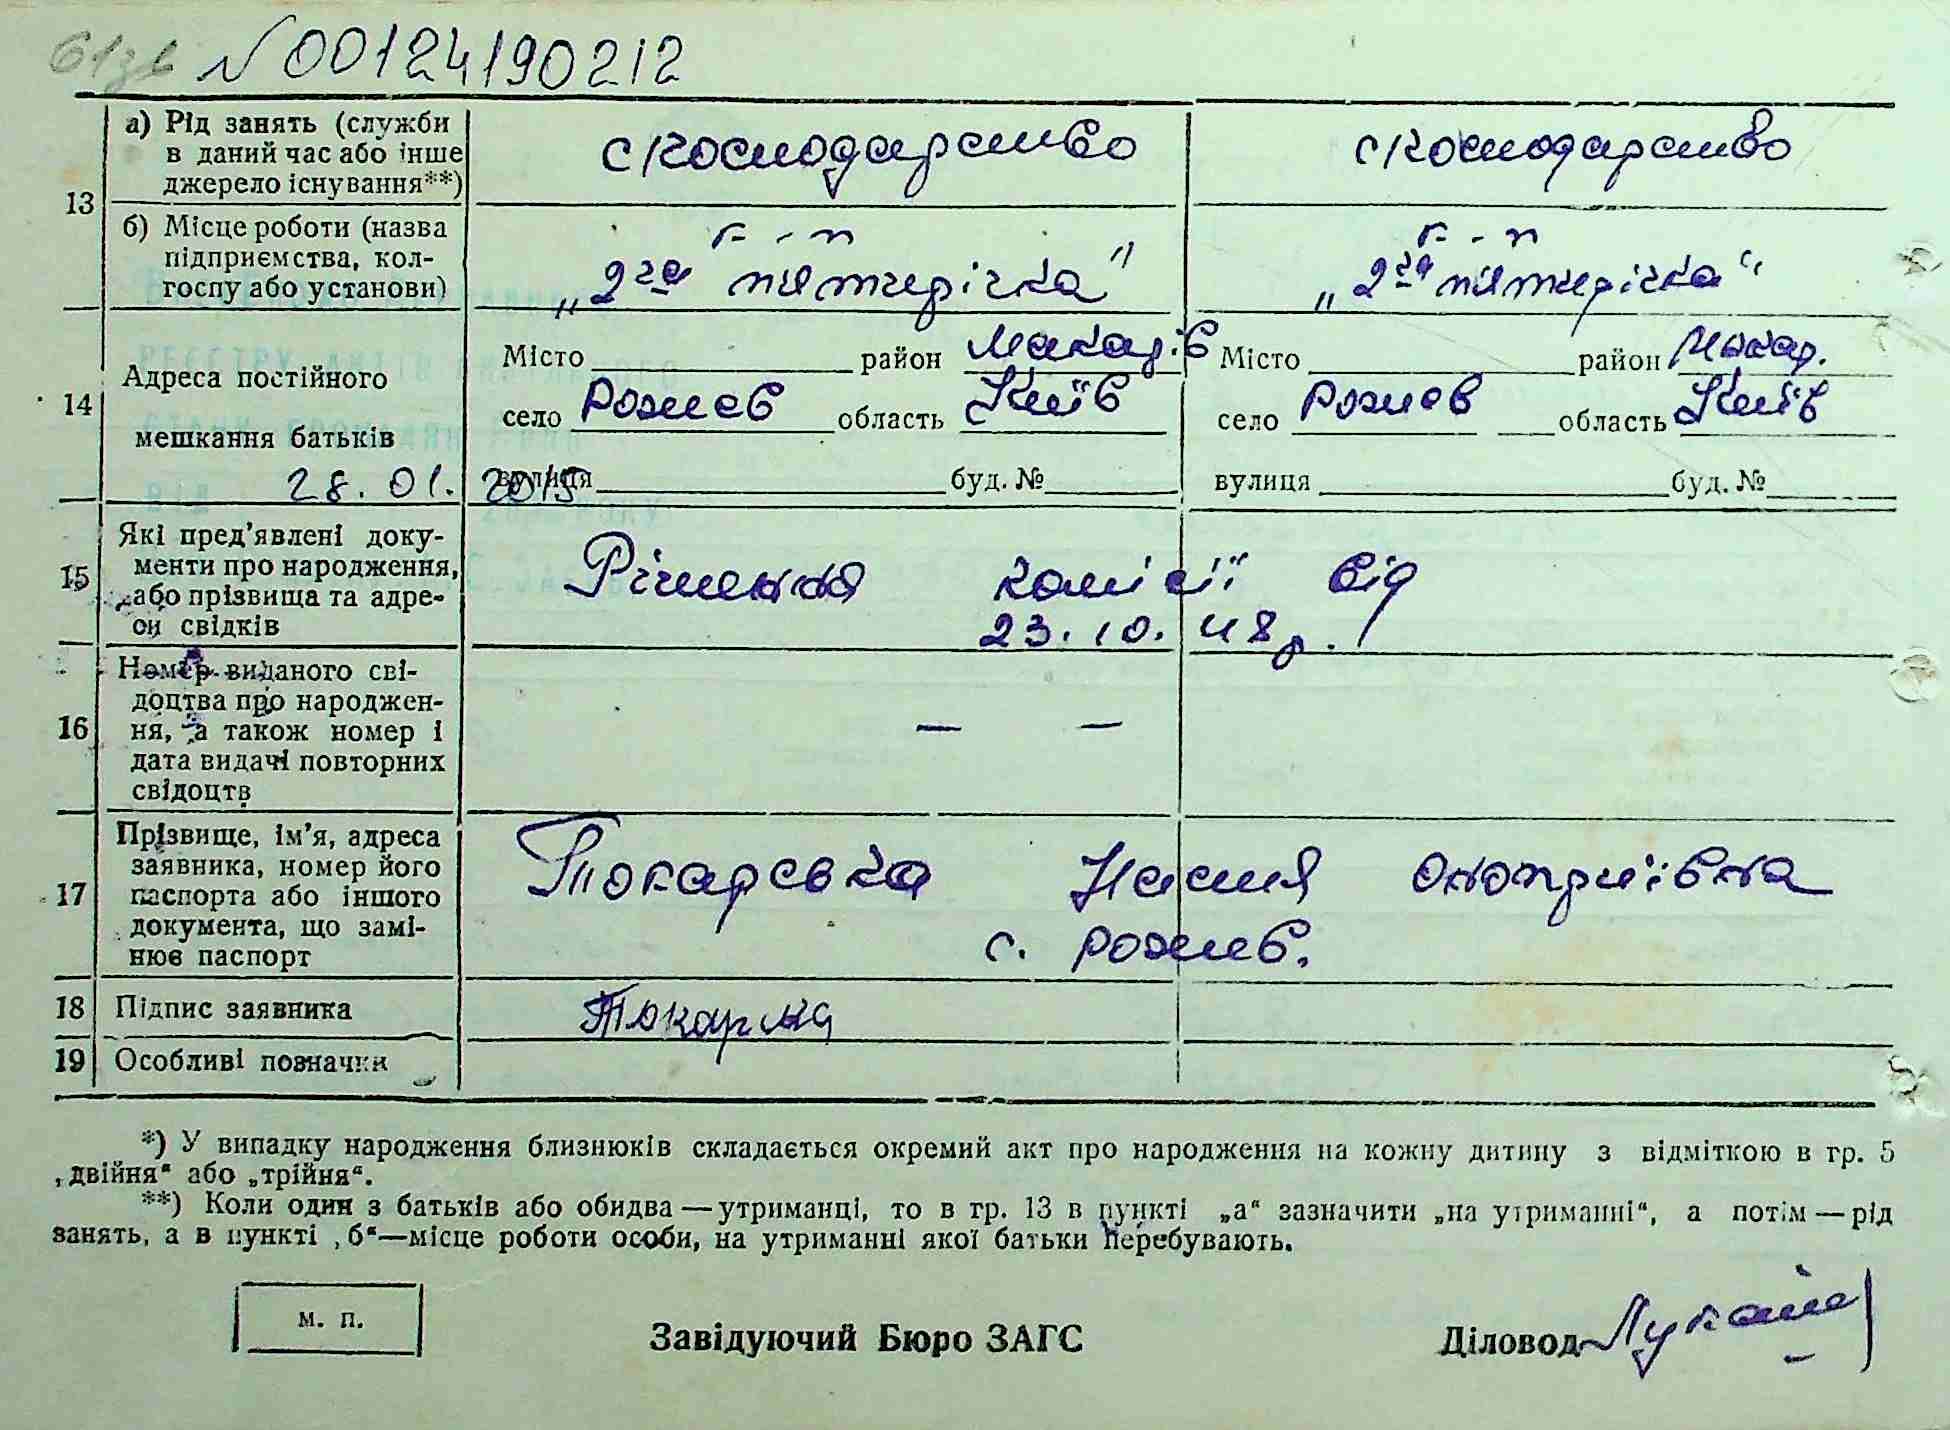 №00124190212
13
а) Рід занять (служби в даний час або інше джерело існування**)
с господарство
с господарство
б) Місце роботи (назва підприємства, колгоспу або установи)
к-п
„2га п'ятирічка"
к-п
„2га п'ятирічка"
14
Адреса постійного мешкання батьків
Місто район Макарів
село Рожев область Київ
вулиця буд. №
Місто район Макар.
село Рожев область Київ
вулиця буд. №
28.01. 2015
15
Які пред'явлені документи про народження, або прізвища та адреси свідків
Рішення комісії від
23.10.48р.
16
Номер виданого свідоцтва про народження, а також номер і дата видачі повторних свідоцтв
— —
17
Прізвище, ім'я, адреса заявника, номер його паспорта або іншого документа, що замінює паспорт
Токаревка Настя Оноприївна
с. Рожев.
18
Підпис заявника
19
Особливі позначки
*) У випадку народження близнюків складається окремий акт про народження на кожну дитину з відміткою в гр. 5
„двійня" або „трійня".
**) Коли один з батьків або обидва — утриманці, то в гр. 13 в пункті „а" зазначити „на утриманні", а потім — рід
занять, а в пункті „б"—місце роботи особи, на утриманні якої батьки перебувають.
м. п.
Завідуючий Бюро ЗАГС
Діловод